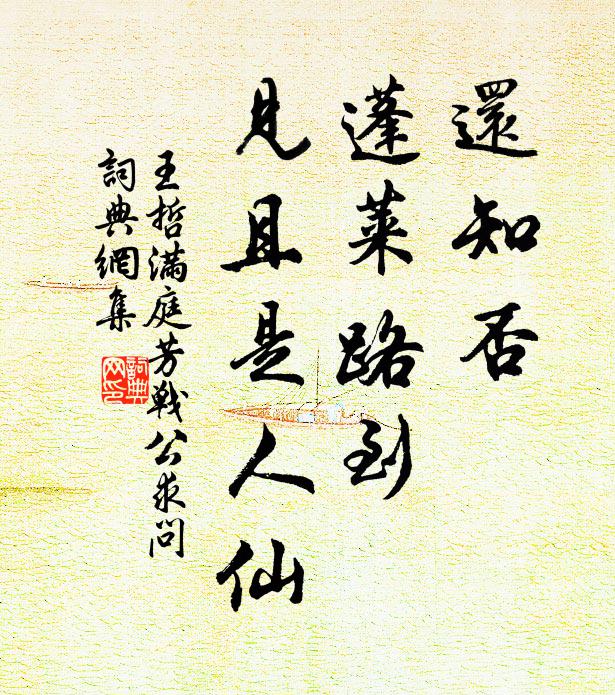 還知否
蓬萊路到
見且是人仙
王哲滿庭芳戰公求問
詞典網集
詞典网印